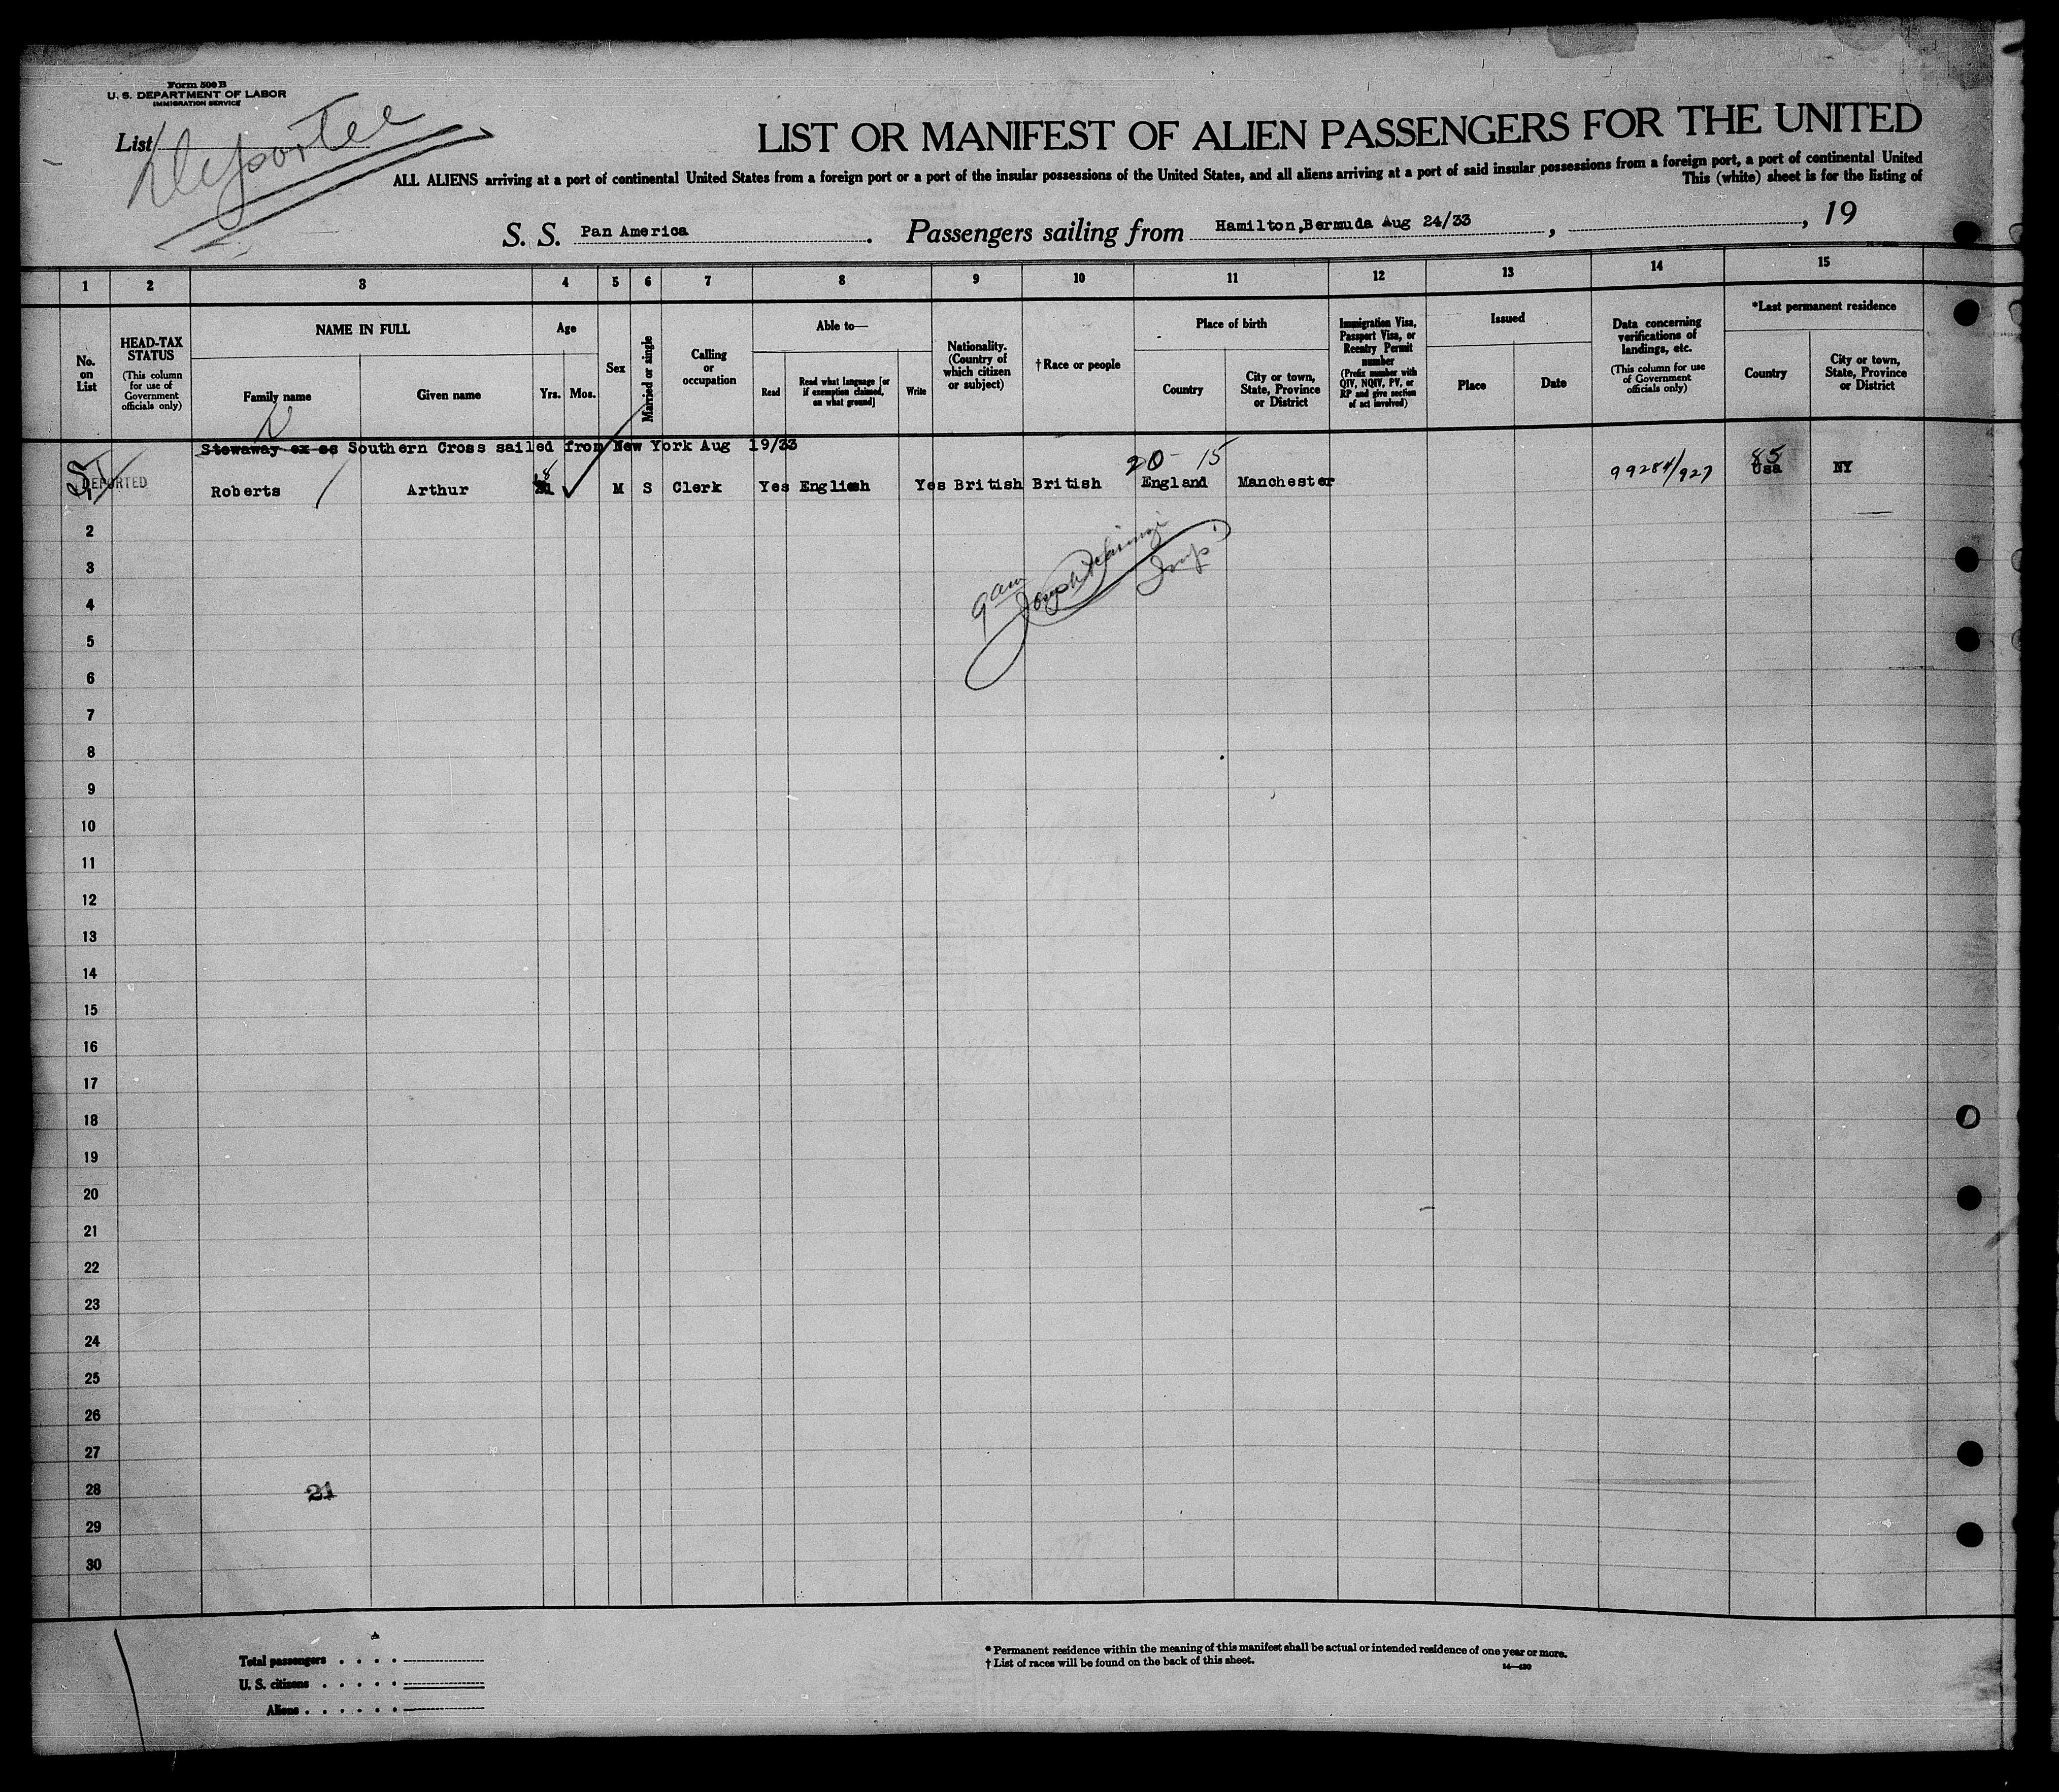 Form 500 B
U. S. DEPARTMENT OF LABOR
IMMIGRATION SERVICE
List
Deportee
LIST OR MANIFEST OF ALIEN PASSENGERS FOR THE UNITED
ALL ALIENS arriving at a port of continental United States from a foreign port or a port of the insular possessions of the United States, and all aliens arriving at a port of said insular possessions from a foreign port, a port of continental United
This (white) sheet is for the listing of
S. S. Pan America. Passengers sailing from Hamilton,Bermuda Aug 24/33, , 19
1 2 3 4 5 6 7 8 9 10 11 12 13 14 15
No. on List
HEAD-TAX STATUS (This column for use of Government officials only)
NAME IN FULL
Family name
Given name
Age
Yrs. Mos.
Sex
Married or single
Calling or occupation
Able to—
Read
Read what language [or if exemption claimed, on what ground]
Write
Nationality. (Country of which citizen or subject)
†Race or people
Place of birth
Country
City or town, State, Province or District
Immigration Visa, Passport Visa, or Reentry Permit number (Prefix number with QIV, NQIV, PV, or RP and give section of act involved)
Issued
Place
Date
Data concerning verifications of landings, etc. (This column for use of Government officials only)
*Last permanent residence
Country
City or town, State, Province or District
Stowaway ex ss Southern Cross sailed from New York Aug 19/33
20 - 15
99284/927
85
DEPORTED
8
Roberts Arthur M S Clerk Yes English Yes British British England Manchester Usa NY
2
3
9 am
4
5
6
7
8
9
10
11
12
13
14
15
16
17
18
19
20
21
22
23
24
25
26
27
28 21
29
30
Total passengers . . . .
U. S. citizens . . . . .
Aliens . . . . . .
* Permanent residence within the meaning of this manifest shall be actual or intended residence of one year or more.
† List of races will be found on the back of this sheet.
14—430